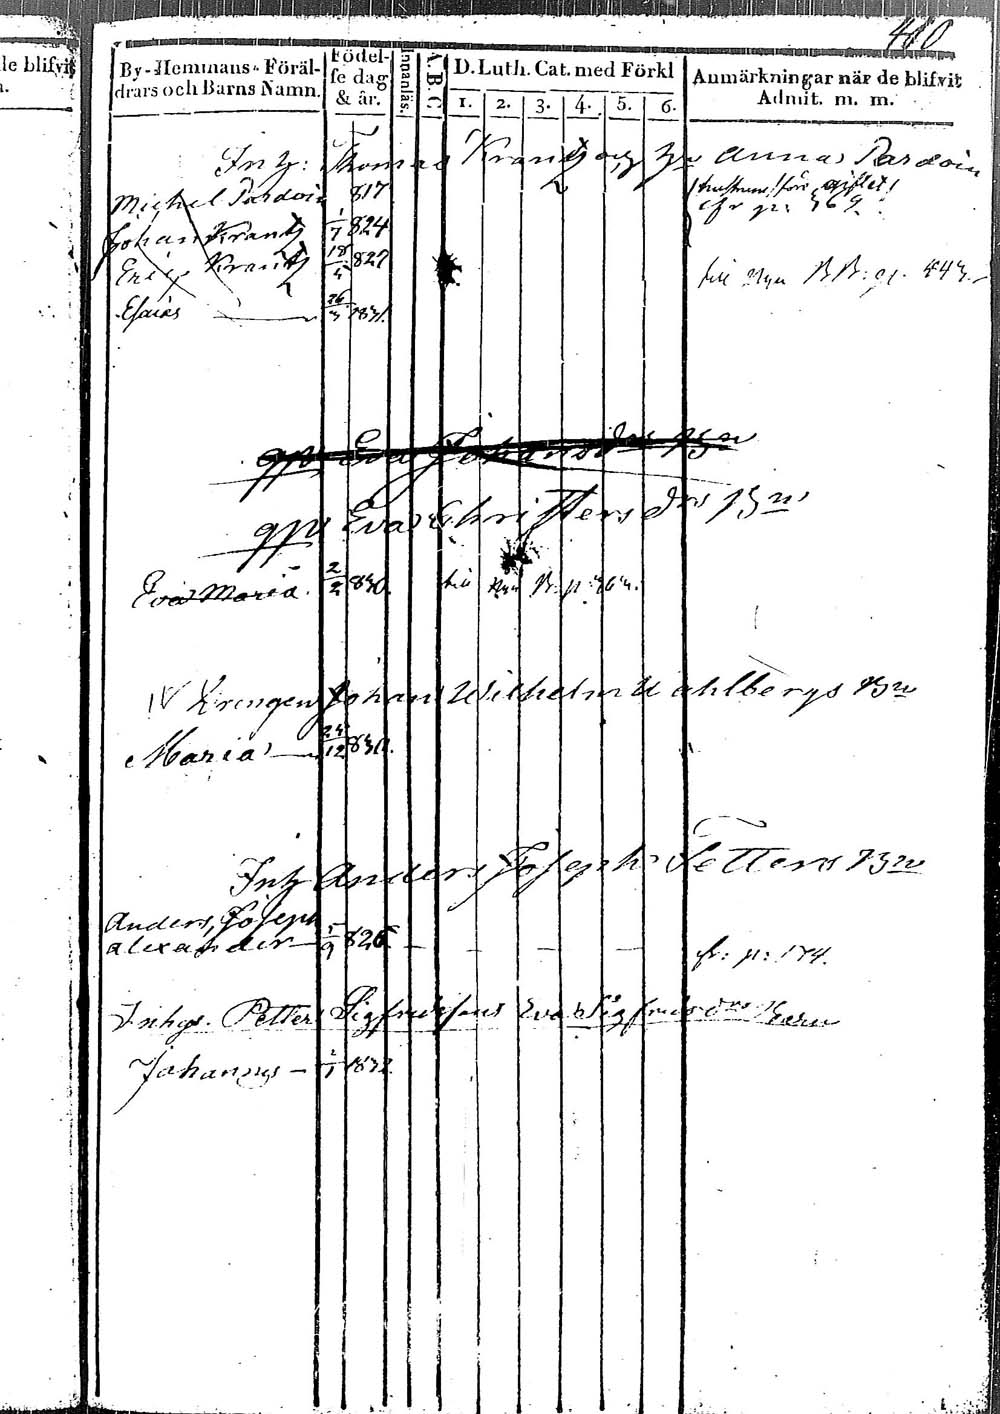 410
le blifvit
By-Hemmans- Föräl-
drars och Barns Namn.
Födel-
se dag
& år.
Innanläs.
A.B.C
D. Luth. Cat. med Förkl
1. 2. 3. 4. 5. 6.
Anmärkningar när de blifvit
Admit. m. m.
Inh: Thomas Krantz och hu Annas Pardoin
Michel Pardoin 817
cfr p: 369.
Johan Krantz 1/7 824
Eric Krantz 18/4 827
till Nya BB: p. 443.
Esaias 26/3 1831.
qpn Eva Johansdrs Bn
qpn Evas Christersdrs Bn
Eva Maria. 2/2 830. till Nya B. p. 363.
Johan Wilhelm Wahlbergs Bn
Maria 24/12 830.
Inh Anders Joseph Fetters Bn
Anders, Joseph
alexander 5/9 826 fr: p: 174.
Inhys. Petter Sigfridssons Eva Sigfridsdrs Barn
Johannes 1/1 1832.